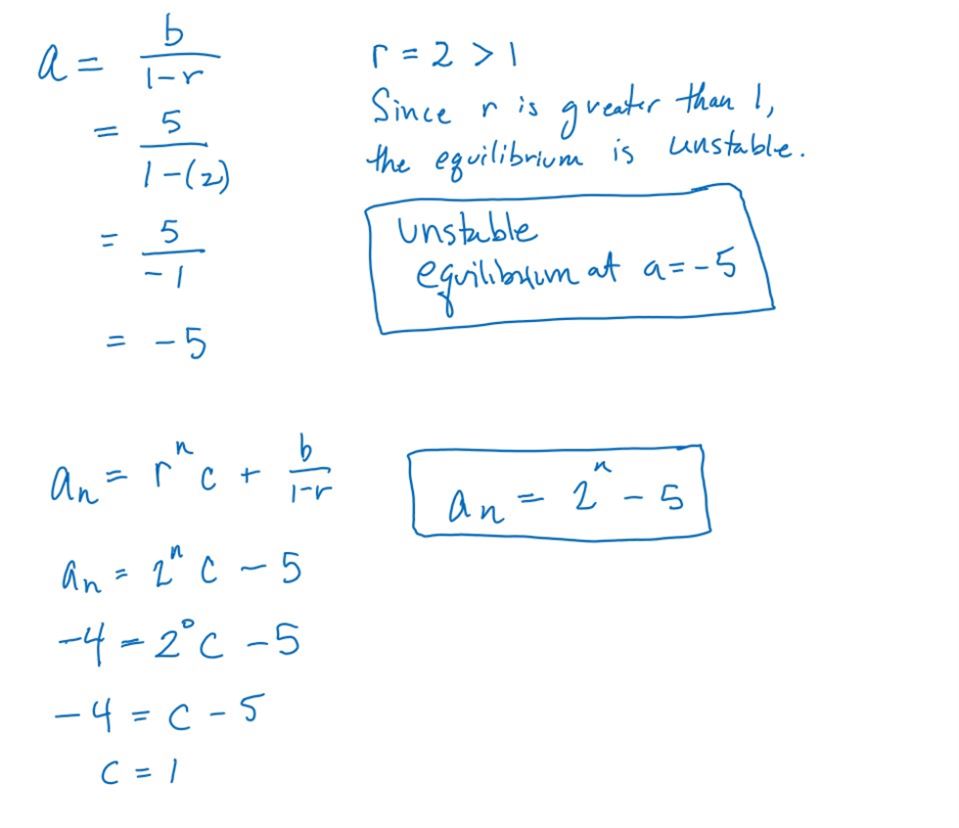 a = b/(1-r)
= 5/(1-(2))
= 5/-1
= -5
r = 2 > 1
Since r is greater than 1,
the equilibrium is unstable.
unstable
equilibrium at a = -5
aₙ = rⁿc + b/(1-r)
aₙ = 2ⁿc - 5
-4 = 2⁰c - 5
-4 = c - 5
c = 1
aₙ = 2ⁿ - 5